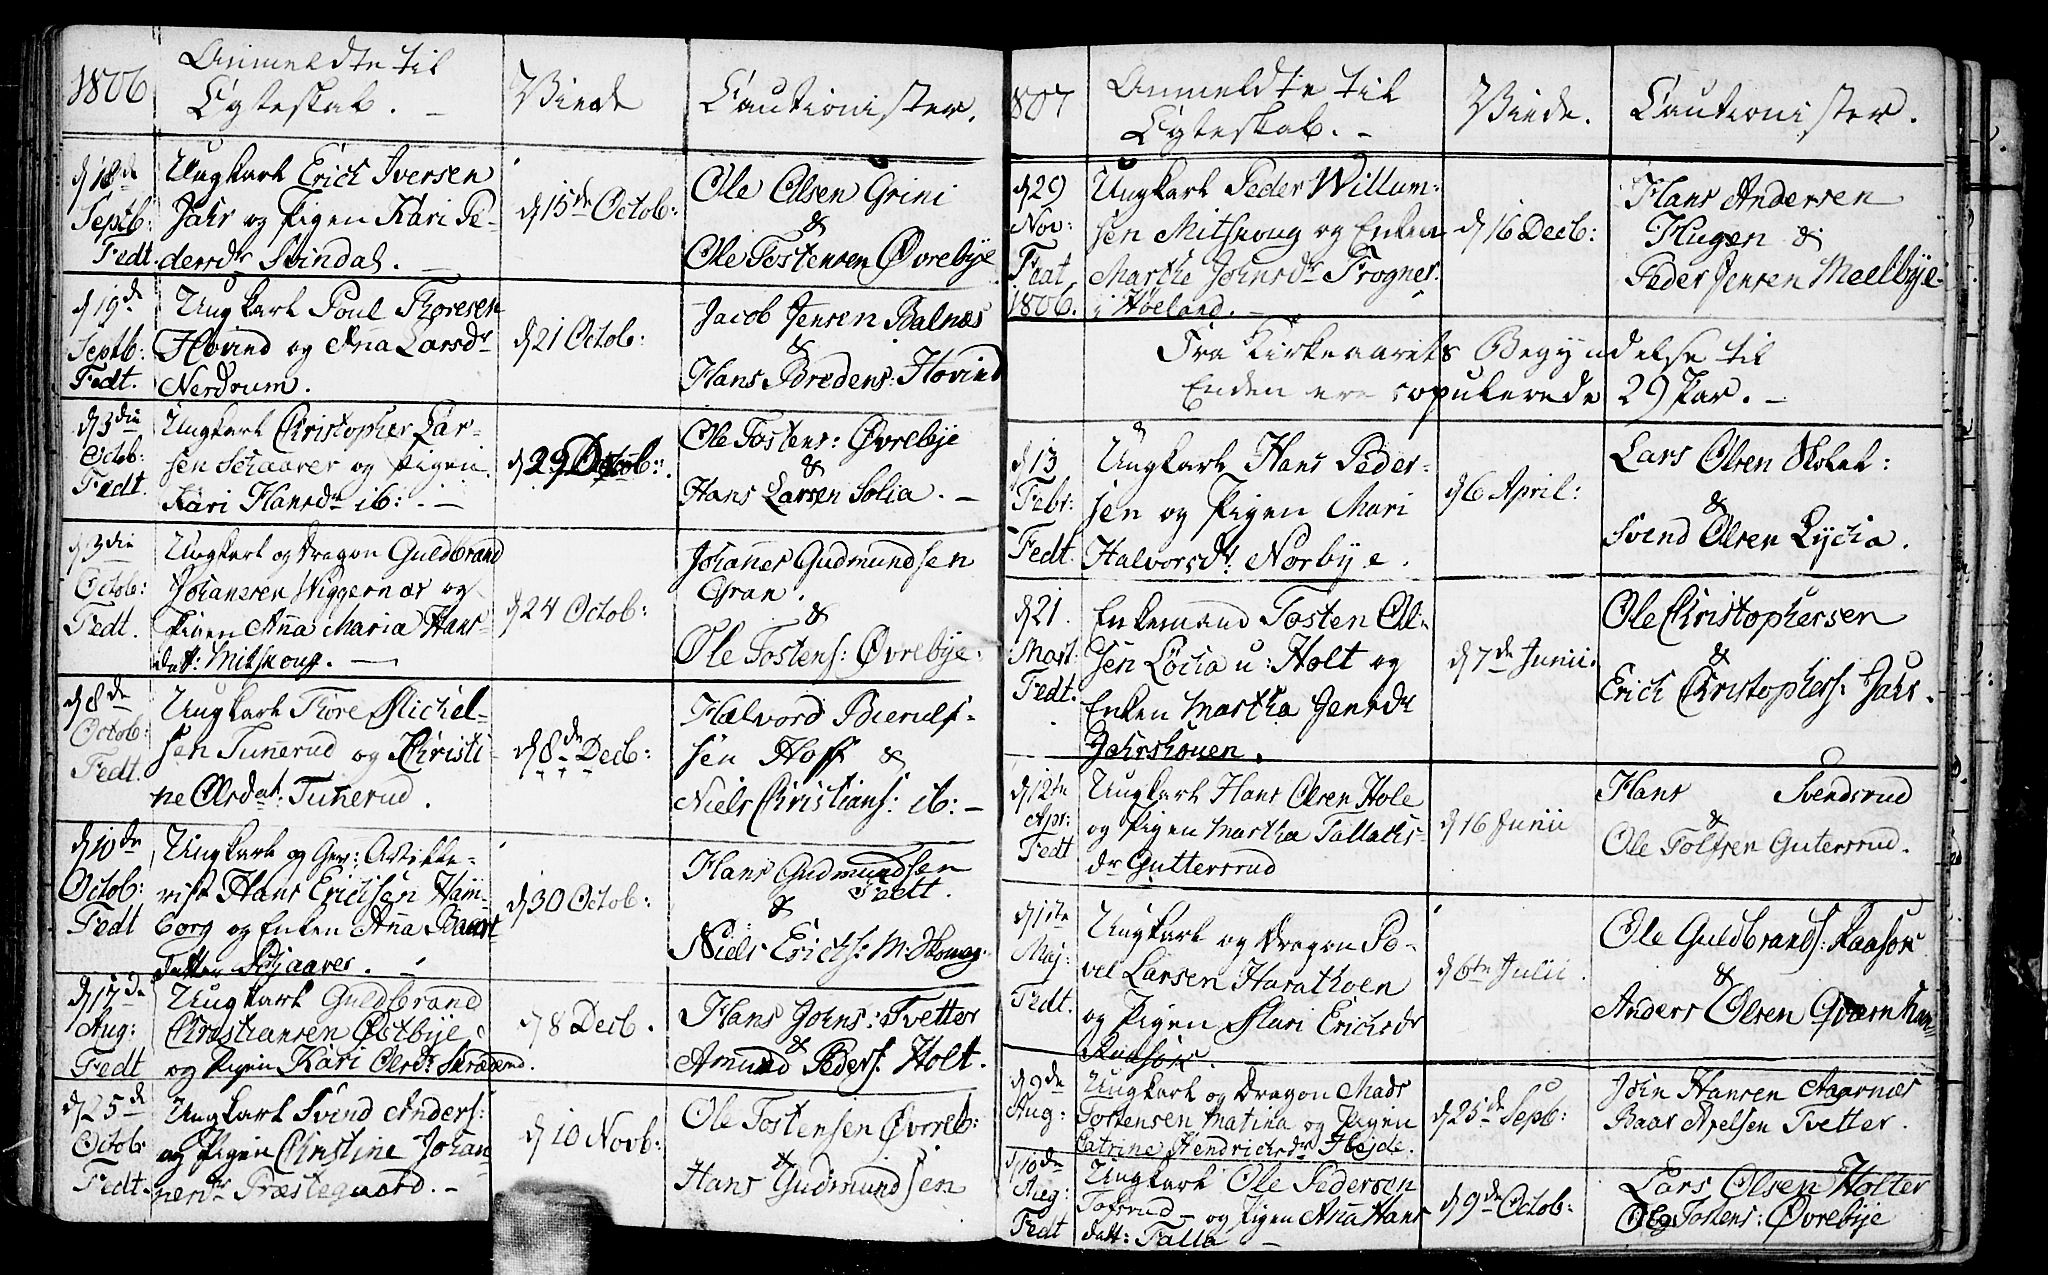 1806
Anmeldte til
Egteskab. -
Viede
Cautionister.
d 18de
Septb:
Fedt.
Ungkarl Erich Iversen
Jahr og Pigen Kari Pe-
dersdr Svindal. -
d 15de Octob:
Ole Olsen Grini
&
Ole Tostensen Øvrebye
d 19de
Septb:
Fedt.
Ungkarl Poul Thoresen
Hovind og Ana Larsdr
Nerdrum.
d 21 Octob:
Jacob Jensen Balnæs
&
Hans Bredens: Hovind
d 3die
Octob:
Fedt.
Ungkarl Christopher Lar-
sen Schaarer og Pigen
Kari Hansdr ib: . -
d 29 Octob:
Ole Tostens: Øvrebye
&
Hans Larsen Solia. -
d 3die
Octob:
Fedt.
Ungkarl og Dragon Guldbrand
Johansen Wiggernæs og
Pigen Ana Maria Hans-
datt: Mitskoug. -
d 24 Octob:
Johannes Gudmundsen
Gran.
&
Ole Tostens: Øvrebye.
d 8de
Octob:
Fedt.
Ungkarl Thore Michel-
sen Tunerud og Christi-
ne Olsdat: Tunerud.
d 8de Decb:
Halvord Bierulf-
sen Hoff &
Niels Christians: ib: -
d 10de
Octob:
Fedt
Ungkarl og Gev: Artille-
rist Hans Erichsen Ham-
borg og Enken Ana Baars-
datter Schaarer. -
d 30 Octob:
Hans Gudmundsen
Tvett.
&
Niels Erichs: M: Skoug.
d 17de
Aug:
Fedt
Ungkarl Guldbrand
Christiansen Østbye
og Pigen Kari Olsdr
d 8 Decb.
Hans Johns: Tvetter
&
Amund Peders: Holt.
d 25de
Octob
Fedt.
Ungkarl Svend Anders:
og Pigen Christine Johan-
nesdr Præstegaard. -
d 10 Novb:
Ole Tostensen Øvreb:
&
Hans Gudmundsen
1807
Anmeldte til
Egteskab. -
Viede.
Cautionister.
d 29
Nov:
1806.
Ungkarl Peder Willum-
sen Mitskoug og Enken
Marthe Johnsdr Frogner
i Høeland. -
d 16 Decb:
Hans Andersen
Hugen &
Peder Jensen Meelbye.
Fra Kirkeaarets Begyndelse til
Enden ere copulerede 29 Par. -
d 13
Febr:
Fedt.
Ungkarl Hans Peder-
sen og Pigen Mari
Halvorsdr: Norbye.
d 6 April:
Lars Olsen
&
Svend Olsen Lycia.
d 21.
Mart:
Fedt.
Enkemand Tosten Ol-
sen Locia u: Holt og
Enken Martha Jensdr
Jahrshouen.
d 7de Junii.
Ole Christophersen
&
Erich Christophers: Jahr.
d 12te
Apr:
Fedt
Ungkarl Hans Olsen Hole
og Pigen Martha Tallachs-
dr Guttersrud
d 16 Junii
Hans Svendsrud
&
Ole Tolfsen Gutersrud.
d 1ste
Maj:
Fedt.
Ungkarl og Dragon Po-
vel Larsen Harathoen
og Pigen Mari Erichsdr
Raasok.
d 6te Julii.
Ole Guldbrands: Raasok
&
Anders Olsen Qværnhan-
d 9de
Aug:
Ungkarl og Dragon Mads
Tostensen Matina og Pigen
Catrine Hendrichsdr Hejde.
d 25de Sepb:
John Hansen Aaarnæs
Baar Apelsen Tvetter.
d 10de
Aug:
Fedt
Ungkarl Ole Pedersen
Tofsrud - og Pigen Ana Hans
datt: Falla -
d 9de Octob:
Lars Olsen Holter
Ole Tostens: Øvrebye